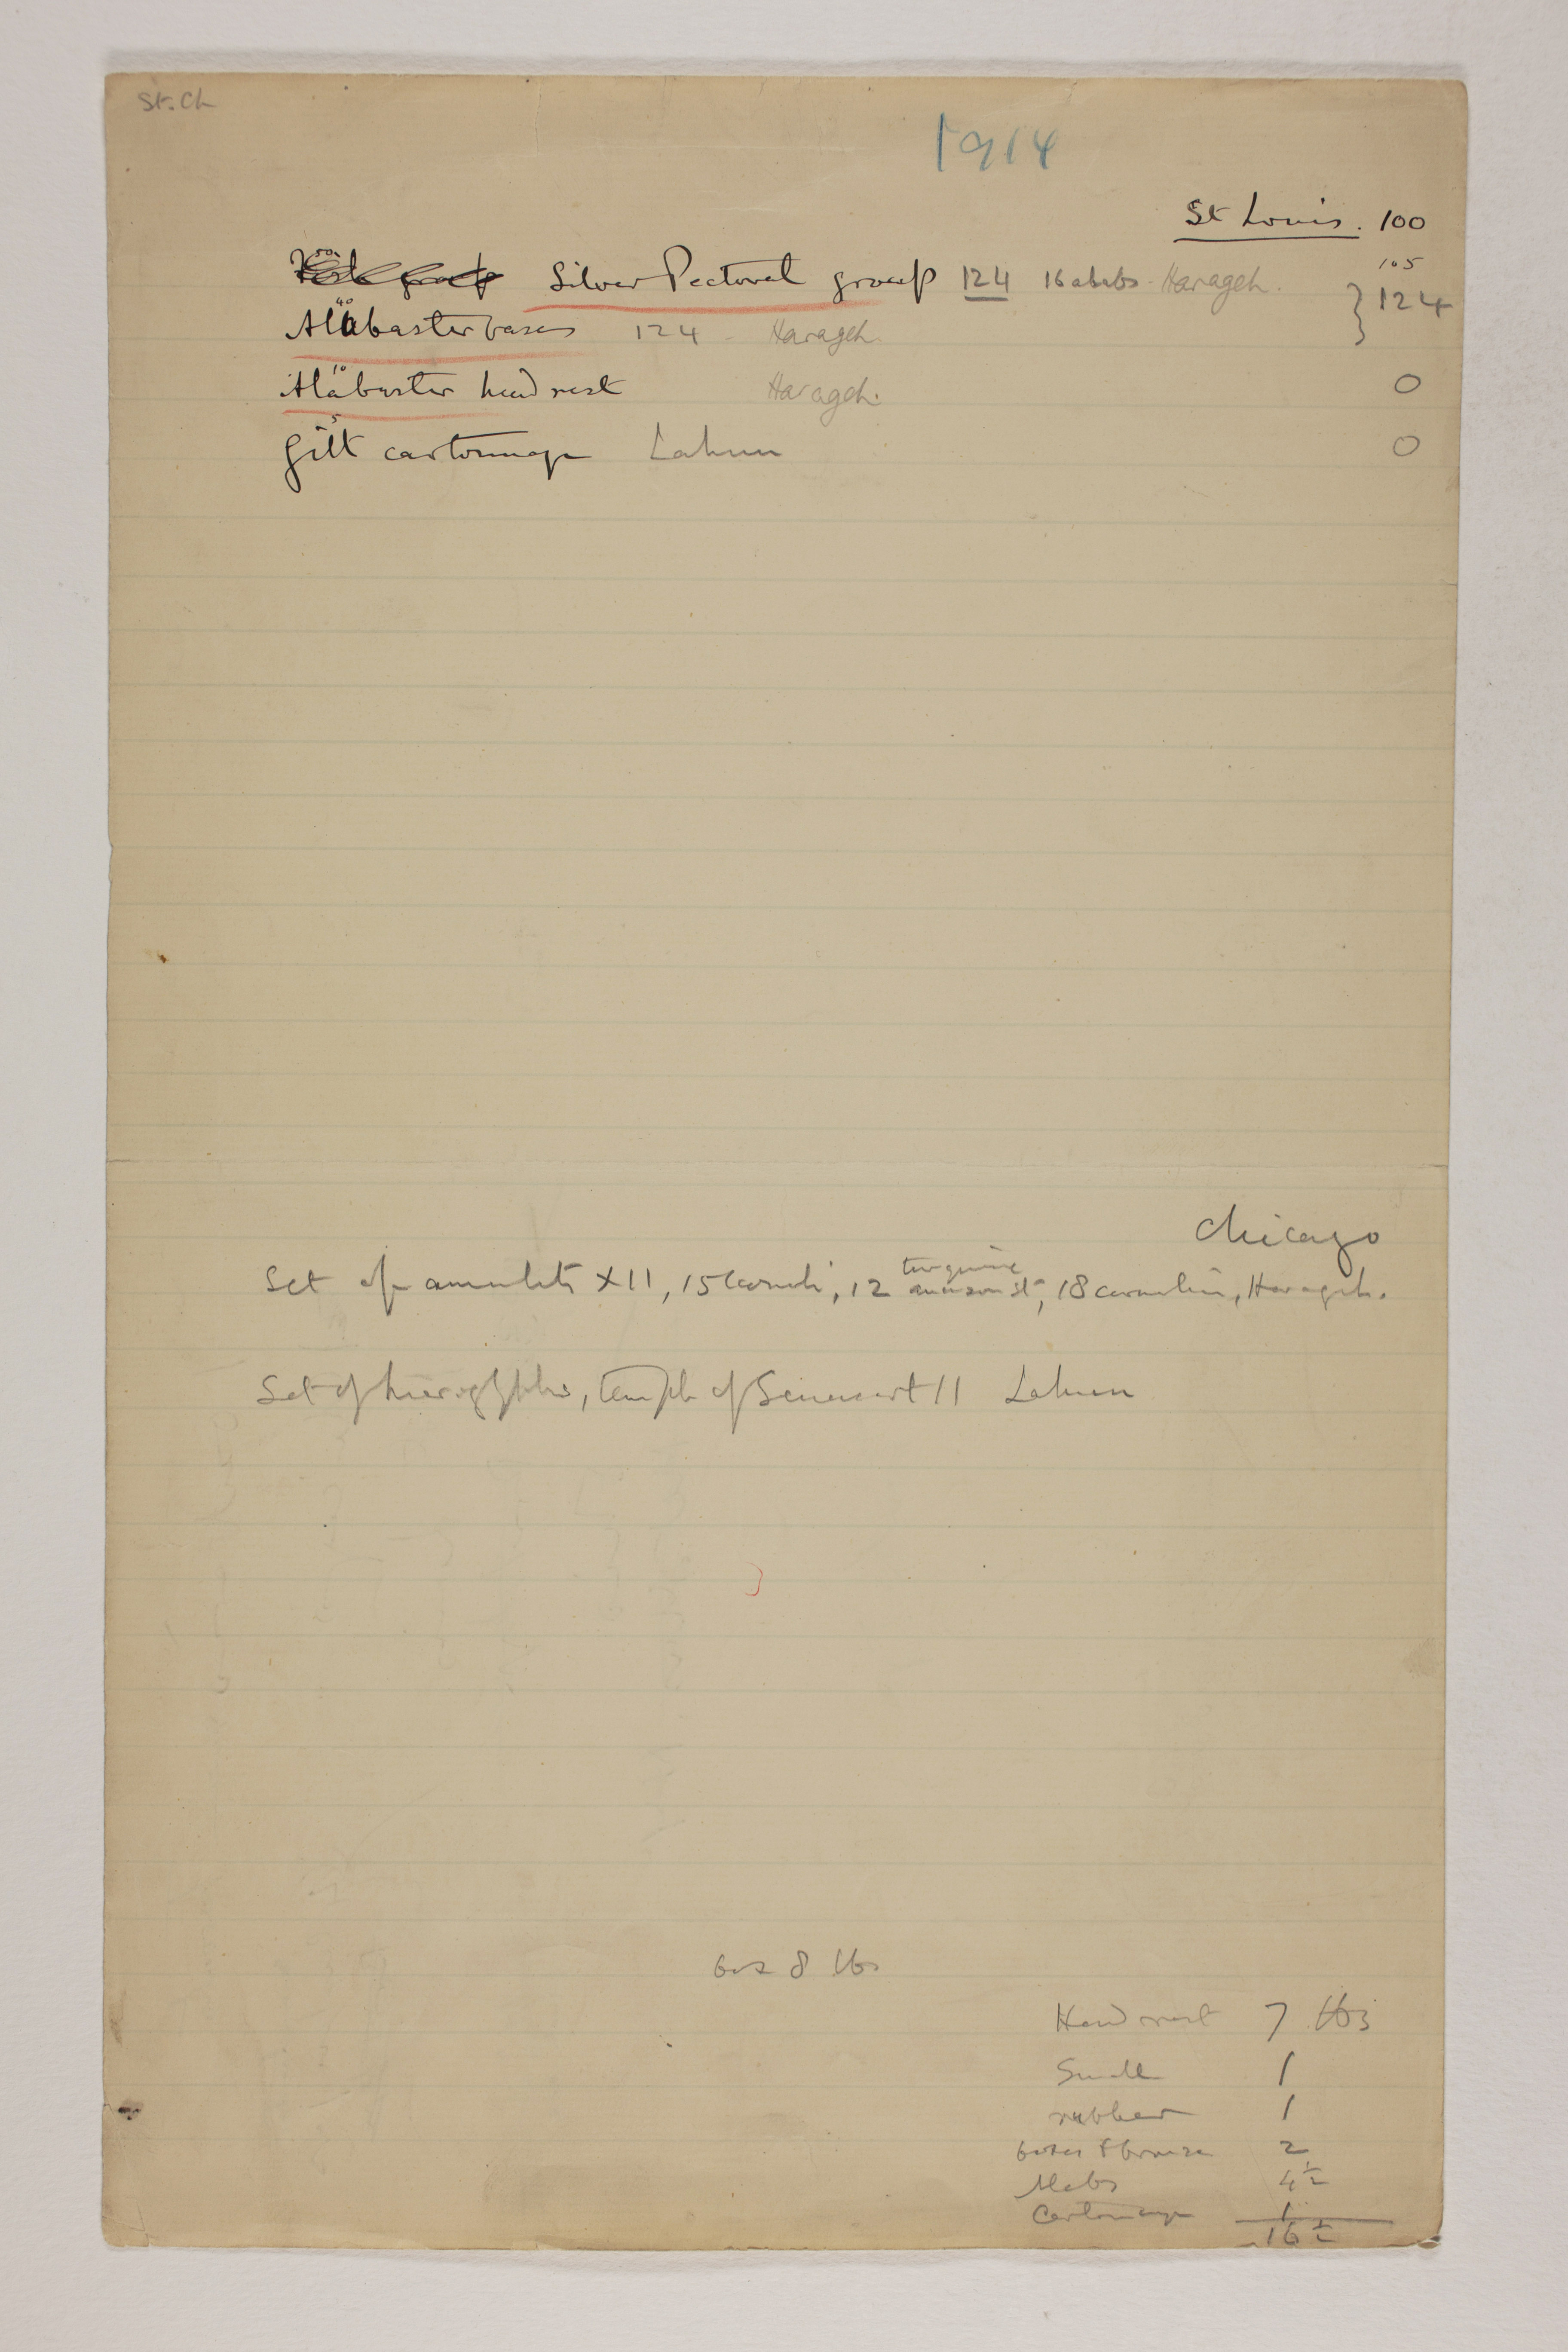 St. Ch
1914
St Louis. 100
50
Silver Pectoral group 124 16 alabs. Harageh. 105
} 124
40
Alabaster vases 124 - Harageh.
10
Alabaster head rest Harageh. 0
5
Gilt cartonnage Lahun 0
Chicago
turquoise
Set of amulets XII, 15 , 12 amazon st, 18 carnelian, Harageh.
Set of hieroglyphs, temple of Senusert II Lahun
box 8 lbs
Head rest 7 lbs
Small 1
rubber 1
boxes & bronze 2
Alabs 4½
Cartonnage 1
16½